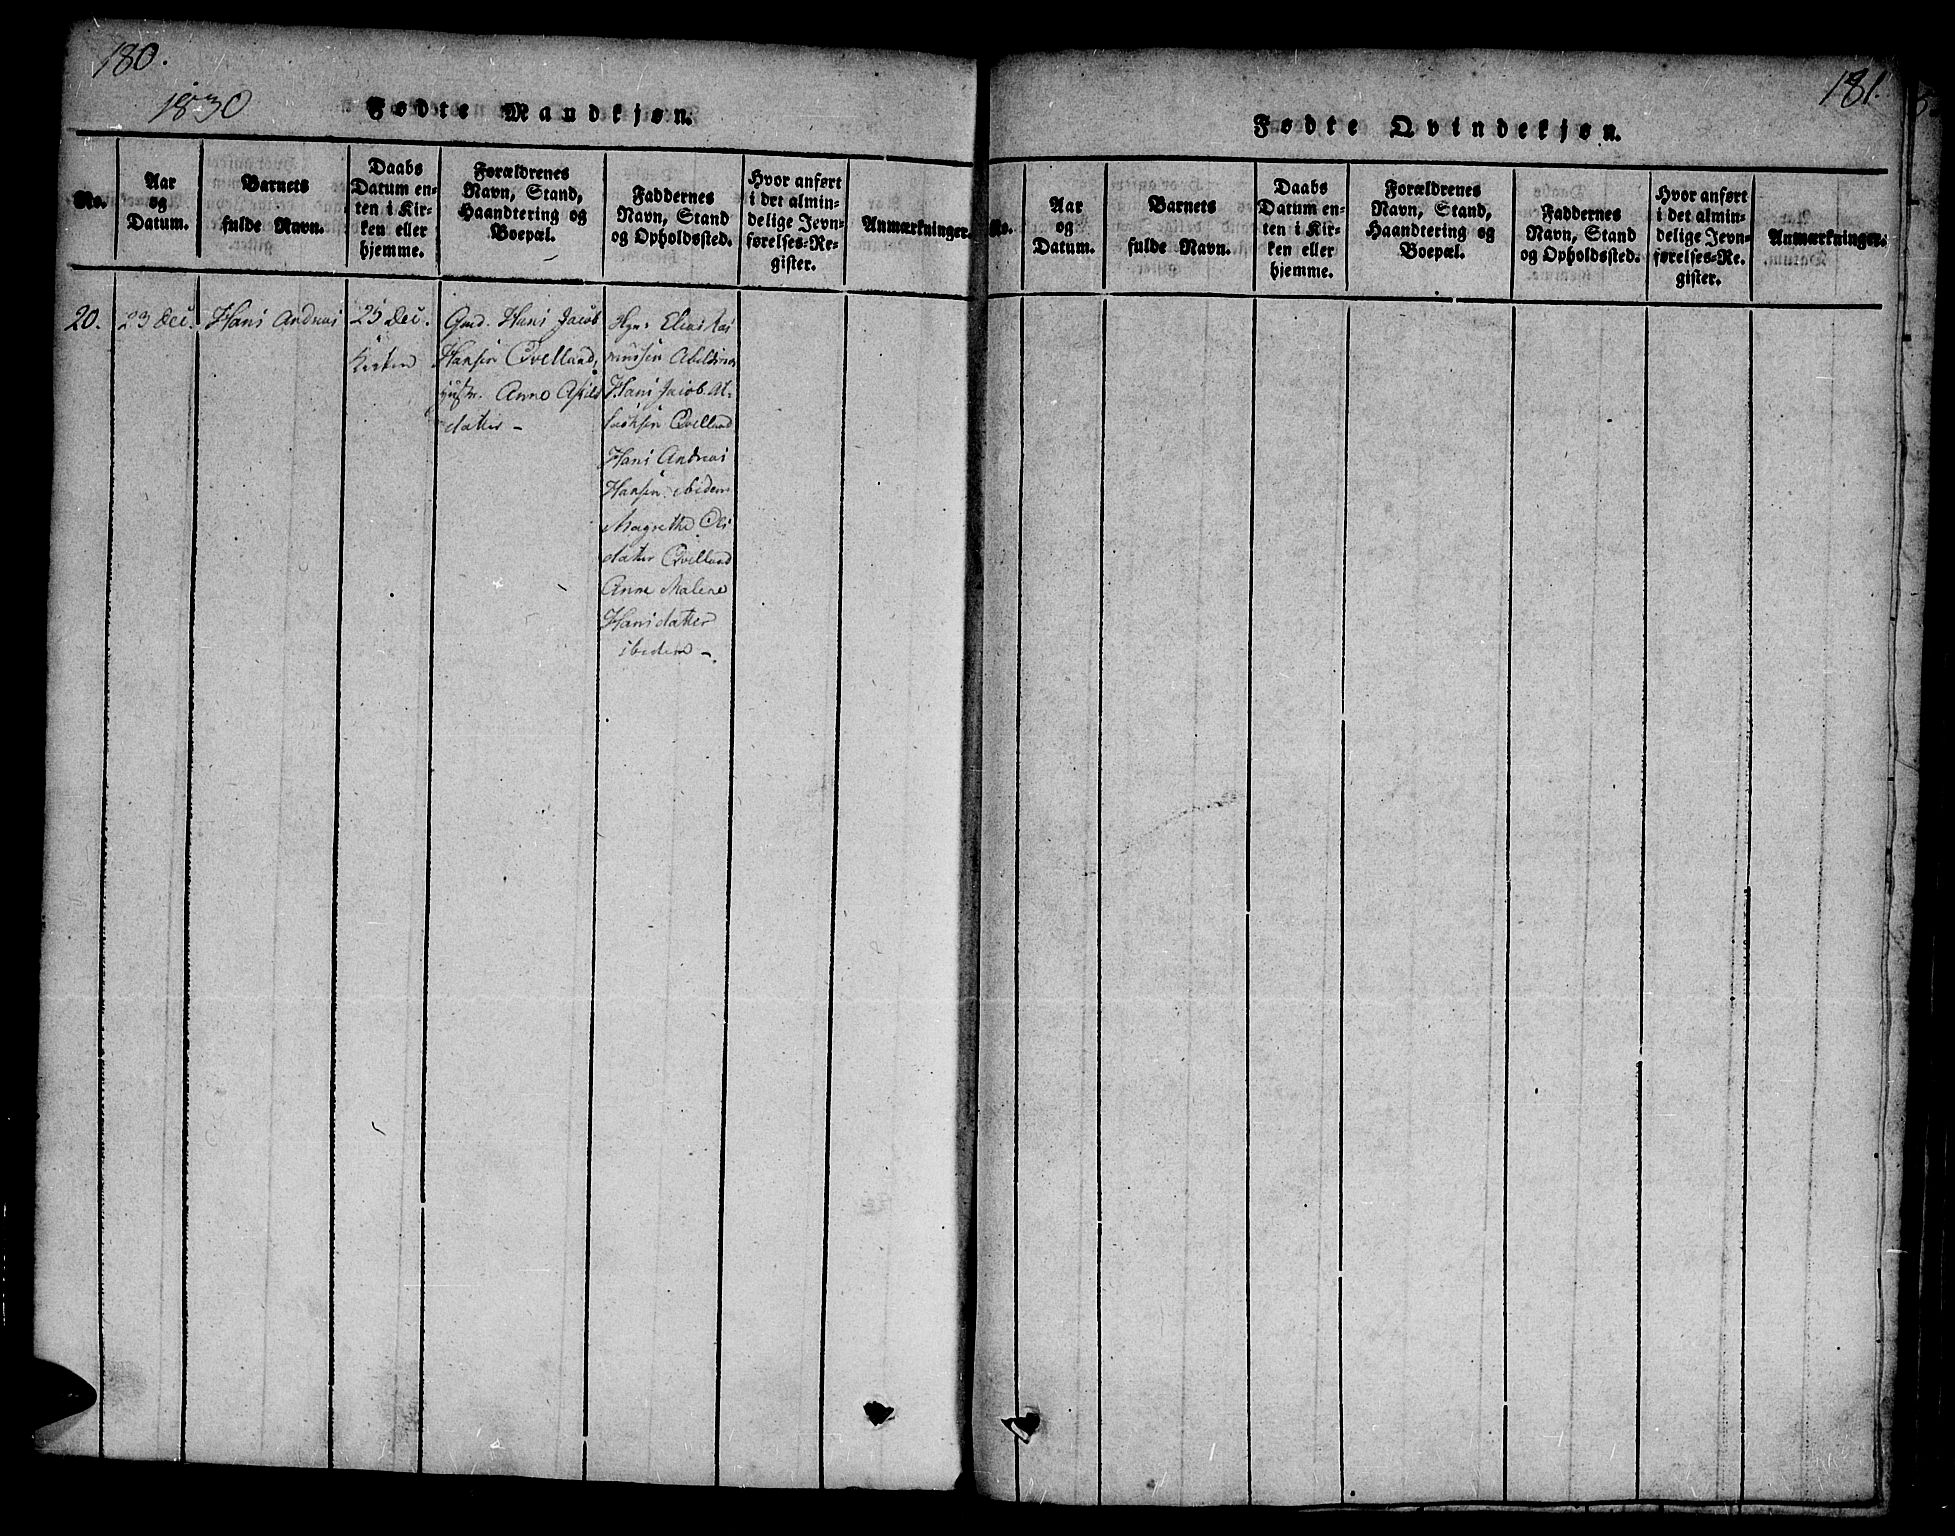 180.
1830
Fødte Mandkjøn.
No.
Aar
og
Datum.
Barnets
fulde Navn.
Daabs
Datum en-
ten i Kir-
ken eller
hjemme.
Forældrenes
Navn, Stand,
Haandtering og
Boepæl.
Faddernes
Navn, Stand
og Opholdssted.
Hvor anført
i det almin-
delige Jevn-
førelses-Re-
gister.
Anmærkninger.
20.
23 Dec.
Hans Andreas
25 Dec.
Kirken
Gmd. Hans Jacob
Hansen Qvelland,
Anne
datter -
Elias Ras
mussen
Hans Jacob
Qvelland
Hans Andreas
Hansen ibidem
Magrethe Ols
datter Qvelland
Anne Malene
Hansdatter
ibidem -
181.
Fødte Qvindekjøn.
No.
Aar
og
Datum.
Barnets
fulde Navn.
Daabs
Datum en-
ten i Kir-
ken eller
hjemme.
Forældrenes
Navn, Stand,
Haandtering og
Boepæl.
Faddernes
Navn, Stand
og Opholdssted.
Hvor anført
i det almin-
delige Jevn-
førelses-Re-
gister.
Anmærkninger.